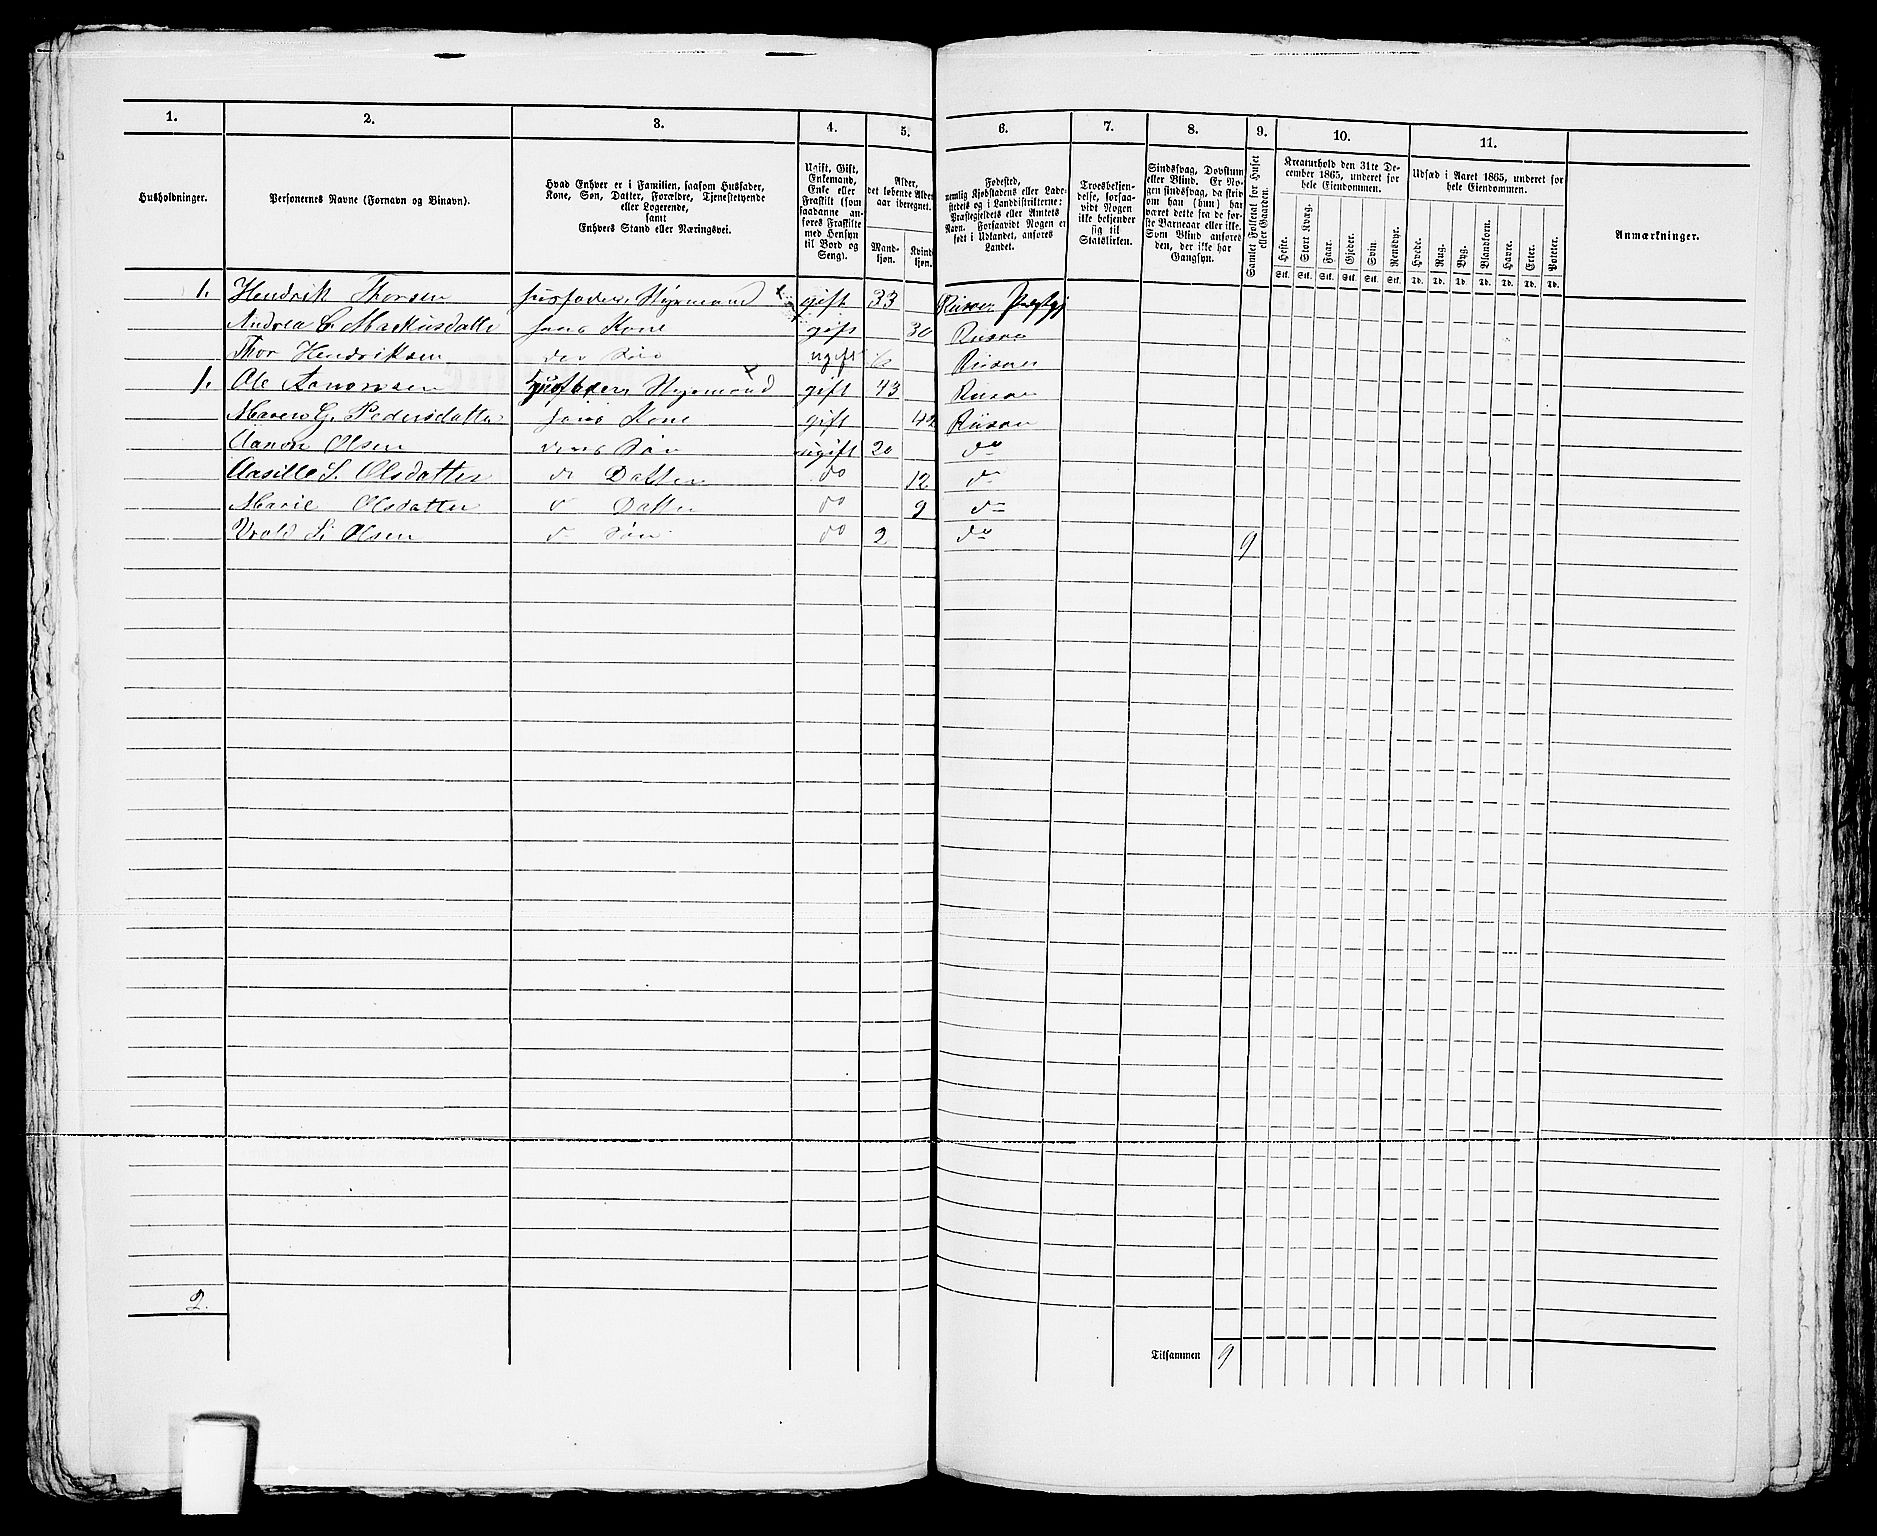 1. 2. 3. 4. 5. 6. 7. 8. 9. 10. 11.
Husholdninger.
Personernes Navne (Fornavn og Binavn).
Hvad Enhver er i Familien, saasom Husfader,
Kone, Søn, Datter, Forældre, Tjenestetyende
eller Logerende,
samt
Enhvers Stand eller Næringsvei.
Ugift, Gift,
Enkemand,
Enke eller
Fraskilt (som
saadanne an-
føres Fraskilte
med Hensyn
til Bord og
Seng).
Alder,
det løbende Alders-
aar iberegnet.
Mand-
kjøn.
Kvinde-
kjøn.
Fødested,
nemlig Kjøbstadens eller Lade-
stedets og i Landdistrikterne:
Præstegjeldets eller Amtets
Navn. Forsaavidt Nogen er
født i Udlandet, anføres
Landet.
Troesbekjen-
delse, forsaa-
vidt Nogen
ikke bekjender
sig til
Statskirken.
Sindssvag, Døvstum
eller Blind. Er No-
gen sindssvag, da skriv
om han (hun) har
været dette fra de før-
ste Barneaar eller ikke.
Som Blind anføres
den, der ikke har
Gangsyn.
Samlet Folketal for Huset
eller Gaarden.
Kreaturhold den 31te De-
cember 1865, underet for
hele Eiendommen.
Heste. Stort Kvæg. Faar. Gjeder. Svin. Rensdyr.
Stk. Stk. Stk. Stk. Stk. Stk.
Udsæd i Aaret 1865, underet for
hele Eiendommen.
Hvede. Rug. Byg. Blandkorn. Havre. Erter. Poteter.
Td. Td. Td. Td. Td. Td. Td.
Anmærkninger.
1. Hendrik Thorsen Husfader, Styrmand gift 33 Riisøer
Andrea C. Markusdatte hans Kone gift 30 Riisøer
Thor Hendriksen der Søn ugift 6 Riisøer
1. Ole Aanonsen Husfader, Styrmand gift 43 Riisøer
Maren G. Pedersdatter hans Kone gift 42 Riisøer
Aanon Olsen deres Søn ugift 20 do
Aasille S. Olsdatter d Datter do 12 d
Marie Olsdatter d Datter do 9 d
Olsen d Søn do 2 do 9
2.
Tilsammen 9